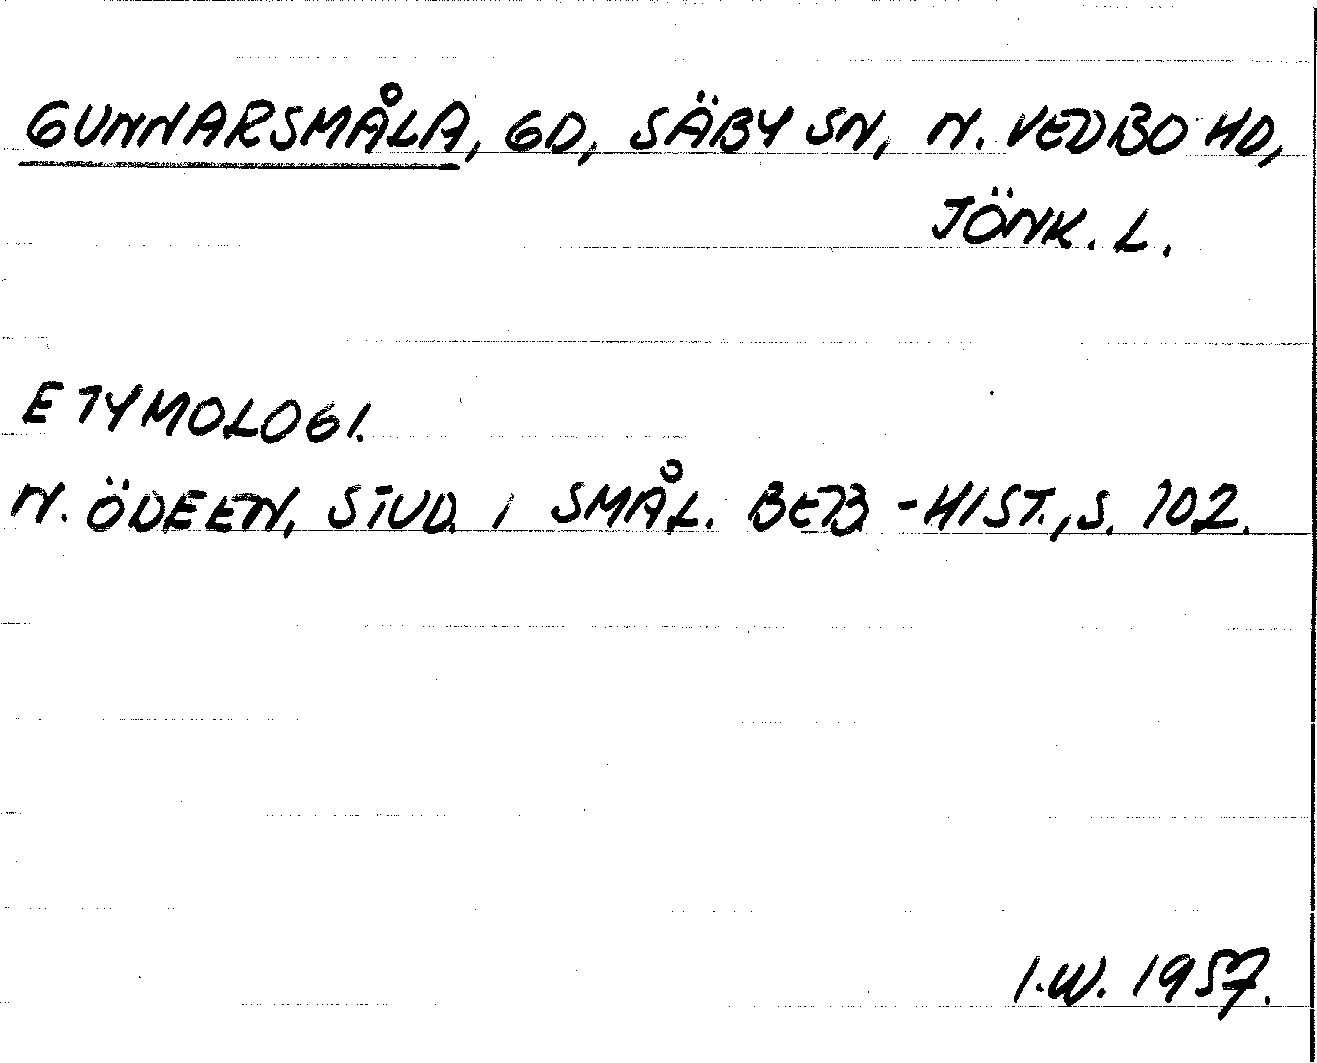 GUNNARSMÅLA, GD, SÄBY SN, N. VEDBO HD,
JÖNK. L.
ETYMOLOGI.
N. ÖDEEN, STUD. I SMÅL. BEB-HIST., S. 102.
I.W. 1957.